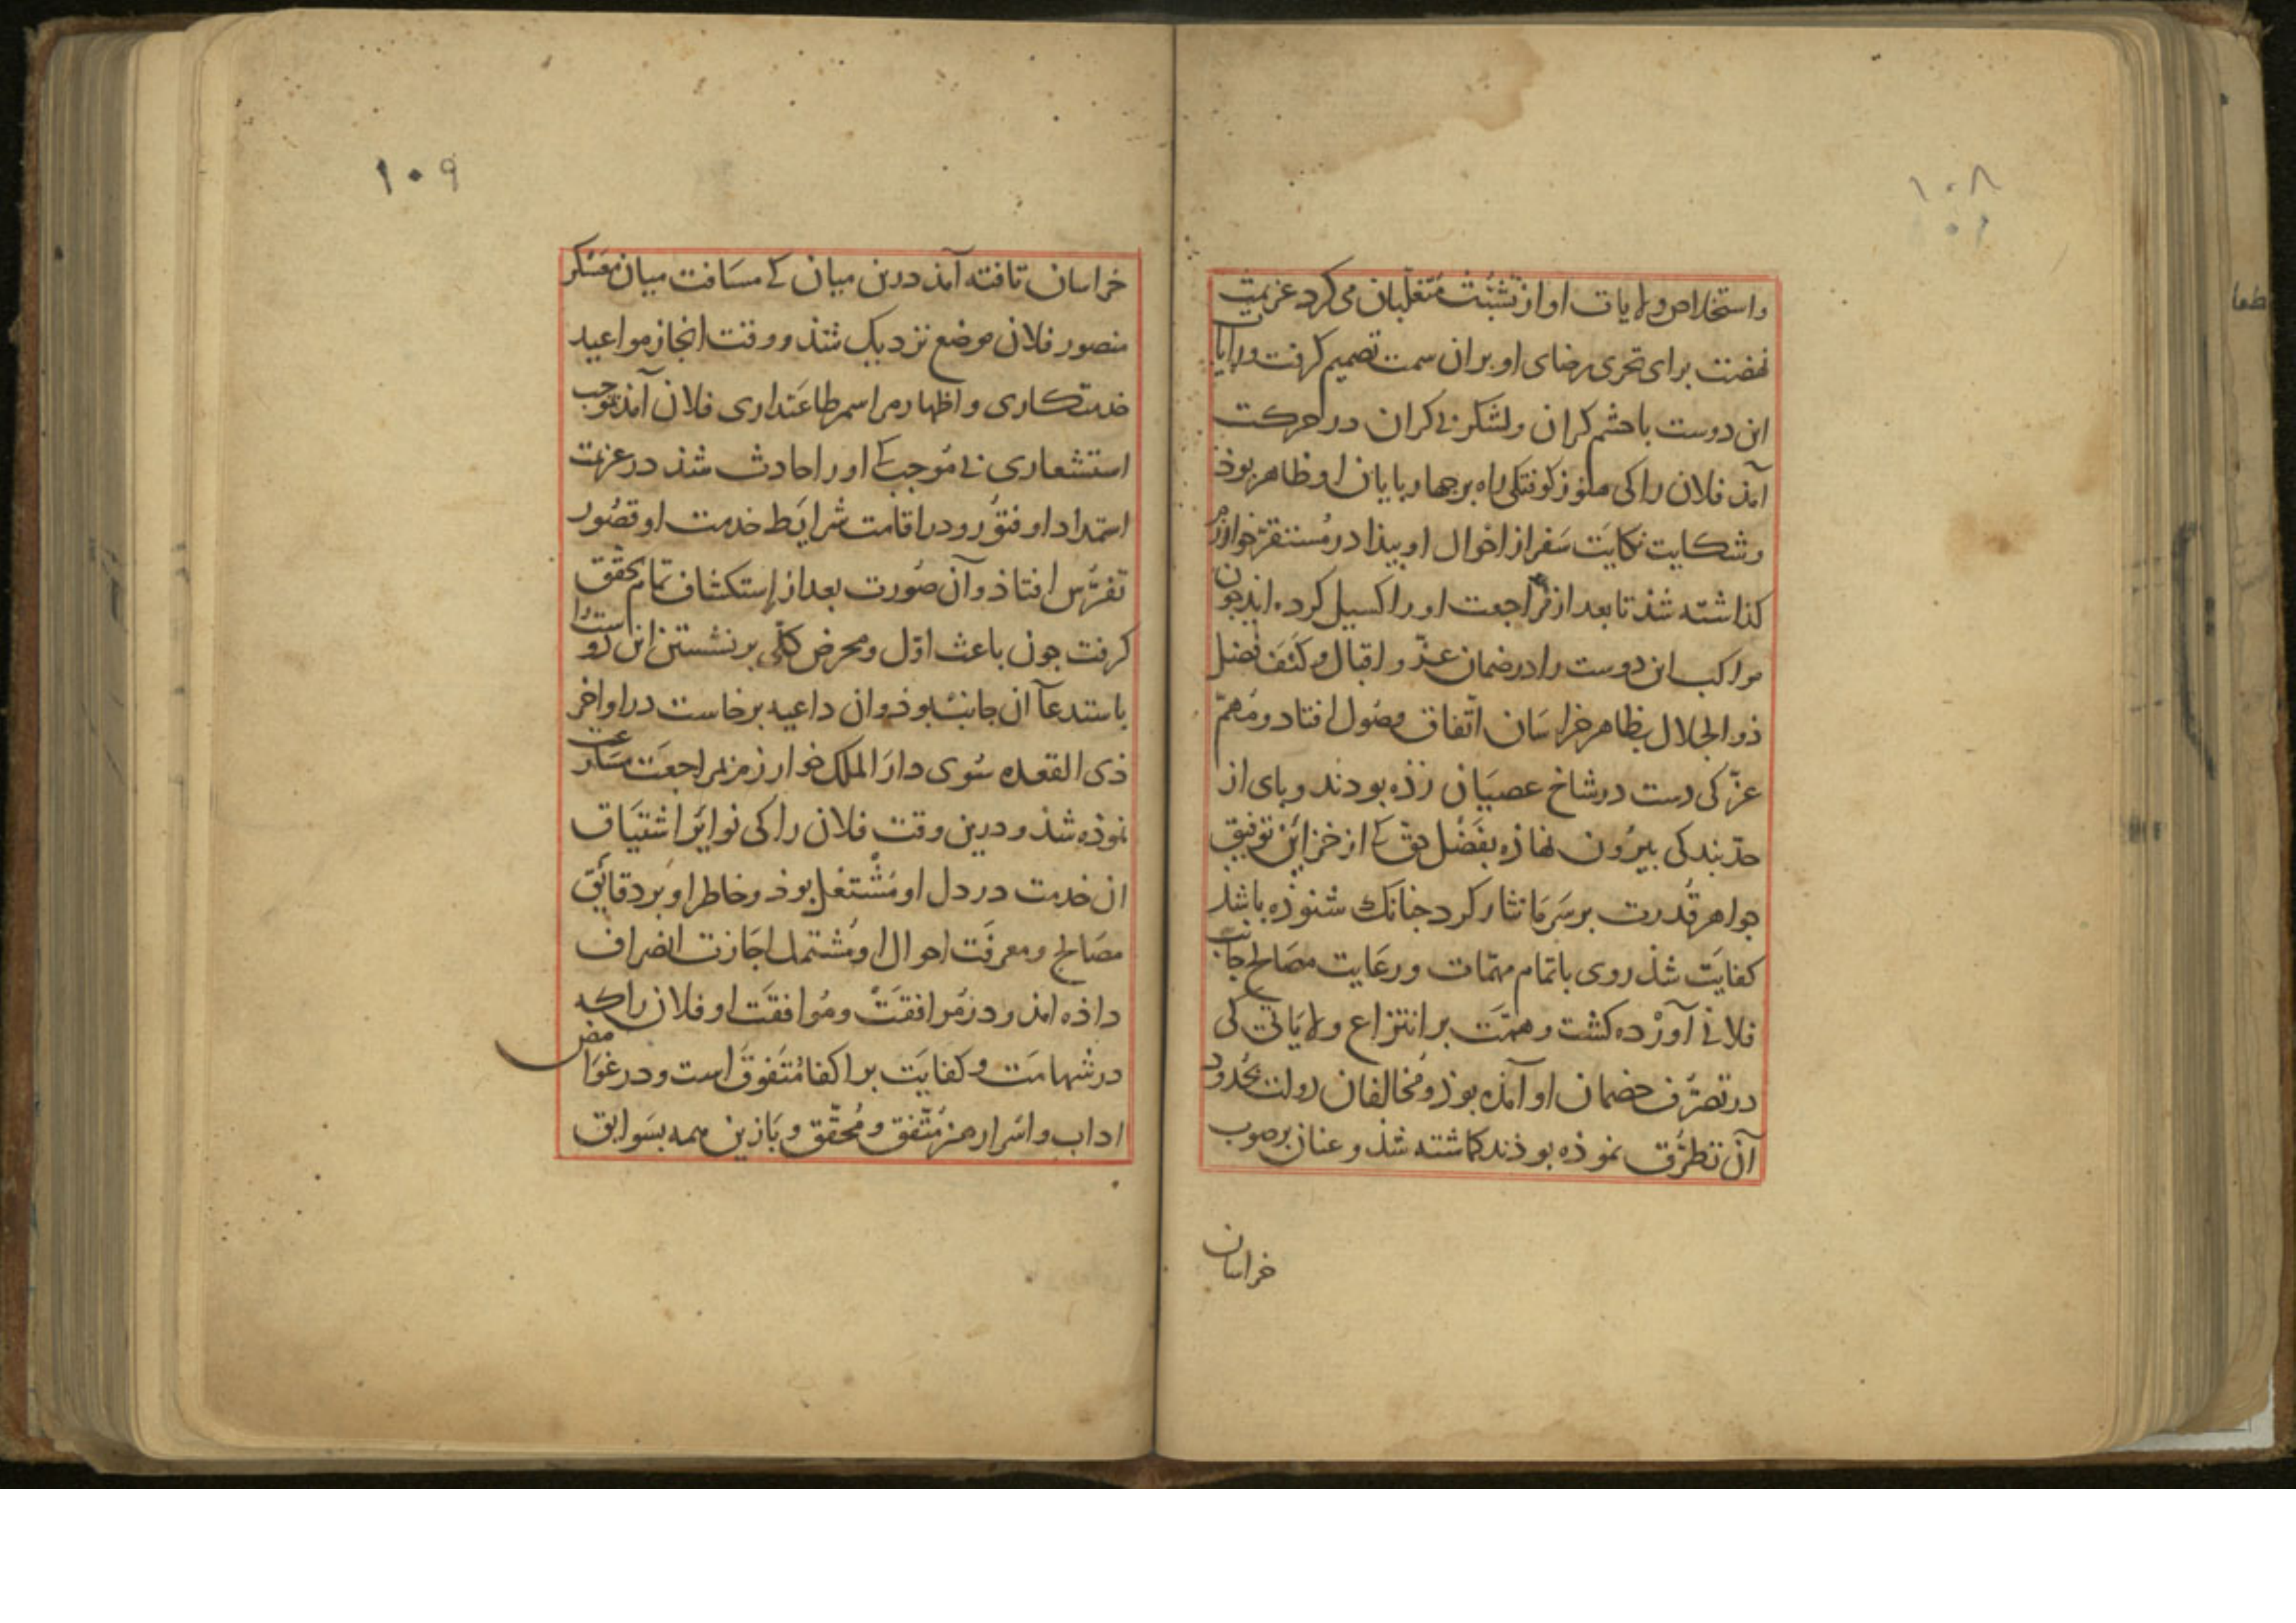 ۱۰۸
واستخلاص ولایات او از تشبث متغلبان می کرد عزیمت
نهضت برای تحری رضای او بران سمت تصمیم کرفت ورایات
این دوست باحشم کران ولشکر بی کران در حرکت
آمد فلان را کی هنوز کوفتکی راه برچهارپایان او ظاهر بوذ
وشکایت نکایت سفر از احوال او پیدا در مستقر خوارزم
کذاشته شذ تا بعد از مراجعت او را کسیل کرده اید جون
مراکب این دوست را در ضمان عز و اقبال و کنف فضل
ذو الجلال بظاهر خراسان اتفاق وصول افتاد ومهم
غز کی دست در شاخ عصیان زذه بودند وپای از
حد بندکی بیرون نهاذه بفضل حق کی از خزاین توفیق
جواهر قدرت بر سر ما نثار کرد جنانک شنوذه باشد
کفایت شذ روی باتمام مهمات ورعایت مصالح جانب
فلانی آورده کشت وهمت بر انتزاع ولایاتی کی
در تصرف خصمان او آمذه بوذ ومخالفان دولت بحدود
آن تطرق نموذه بوذند کماشته شذ وعنان بر صوب
خراسان
۱۰۹
خراسان تافته آمذ درین میان کی مسافت میان معسکر
منصور فلان موضع نزدیک شذ ووقت انجاز مواعید
خدمتکاری واظهار مراسم طاعتداری فلان آمذ
استشعاری بی موجبی او را حادث شذ در عزیمت
استمداد او فتور ودر اقامت شرایط خدمت او قصور
تفرس افتاذ وآن صورت بعد از استکشاف تمام تحقق
کرفت جون باعث اول ومحرض کلی بر نشستن این دوست را
باستدعا آن جانب بوذ وان داعیه برخاست در اواخر
ذی القعده سوی دار الملک خوارزم مراجعت
نموذه شذ ودرین وقت فلان را کی نوایر اشتیاق
ان خدمت در دل او مشتعل بوذ وخاطر او بر دقائق
مصالح ومعرفت احوال او مشتمل اجازت انصراف
داذه امذ ودر مرافقت وموافقت او فلان را که
در شهامت وکفایت بر اکفا متفوق است ودر غوامض
اداب واسرار هنر متفق ومحقق وبازین همه بسوابق